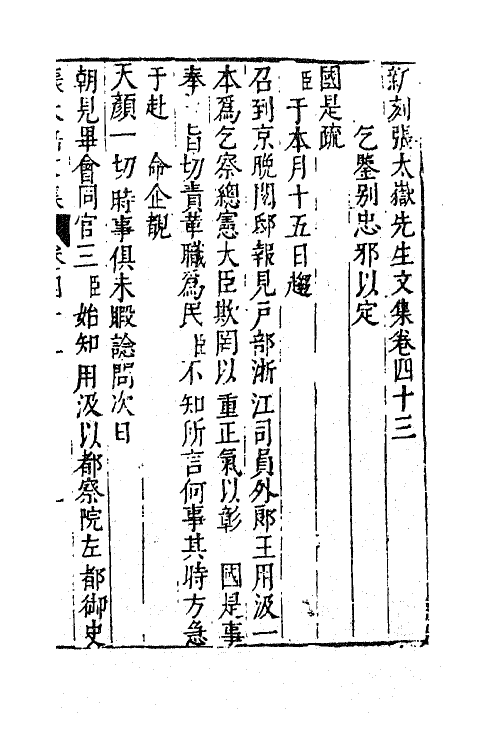 新刻張太嶽先生文集卷四十三
乞鑒别忠邪以定
國是疏
臣于本月十五日趨
召到京晩閲邸報見戸部浙江司員外郎王用汲一
本爲乞察總憲大臣欺罔以重正氣以彰 國是事
奉 旨切責革職爲民臣不知所言何事其時方急
于赴 命企覩
天顔一切時事俱未暇諗問次日
朝見畢會同官三臣始知用汲以都察院左都御史